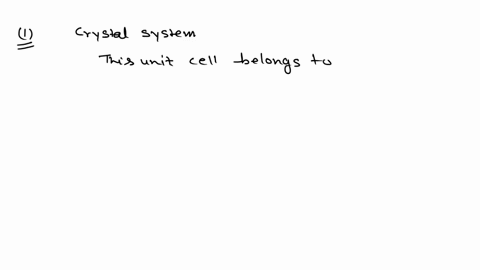 (1) Crystal system
This unit cell belongs to